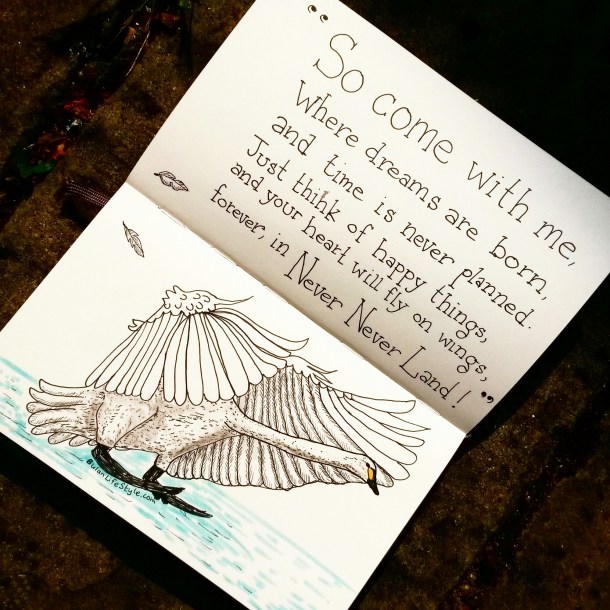 “So come with me,
Where dreams are born,
and time is never planned.
Just think of happy things,
and your heart will fly on wings,
forever, in
Never Never Land!”
BwanLifeStyle.com